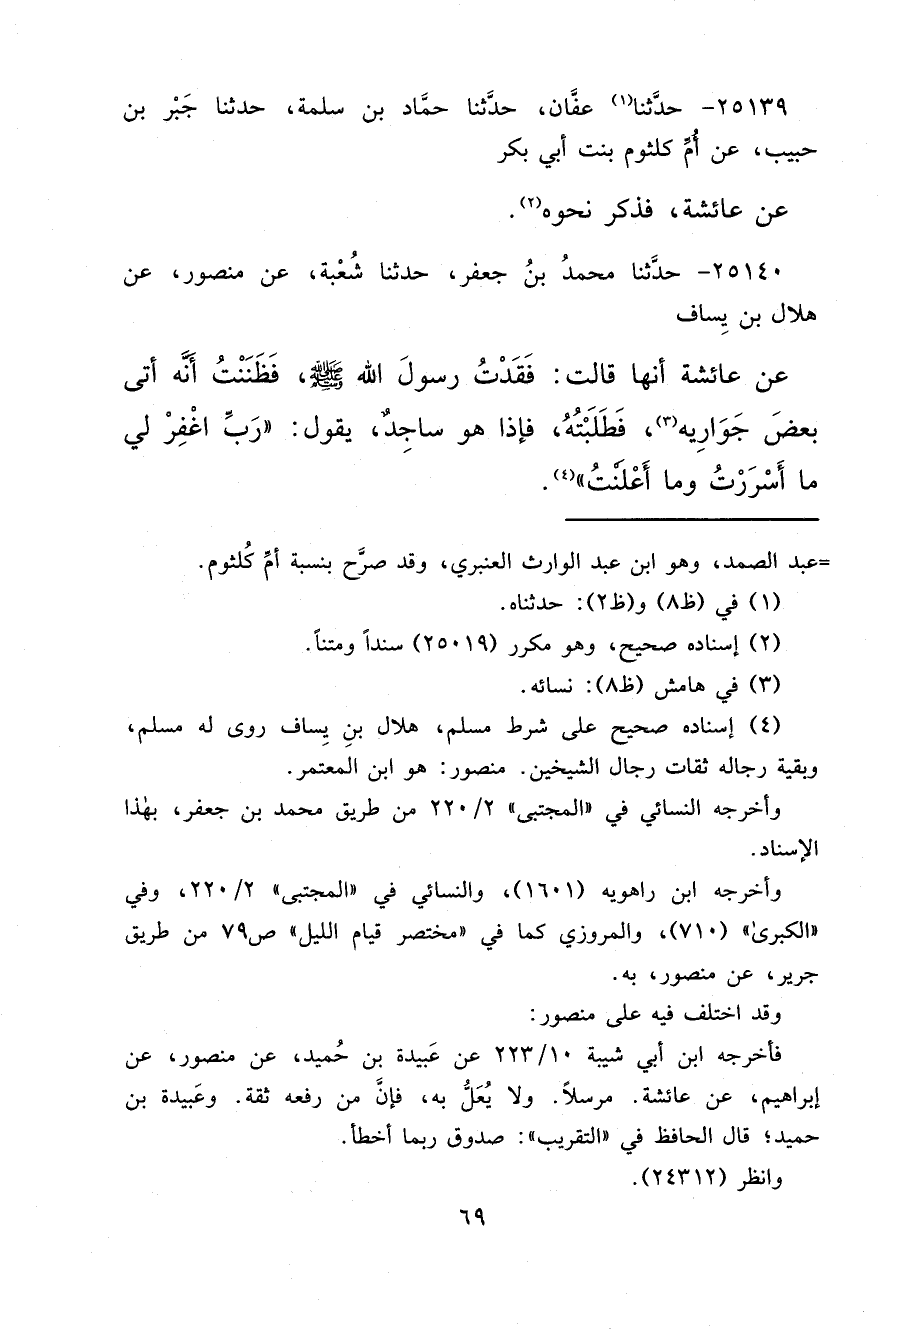 ٢٥١٣٩- حدَّثنا(١) عفَّان، حدَّثنا حمَّاد بن سلمة، حدثنا جَبْر بن
حبيب، عن أُمِّ كلثوم بنت أبي بكر
عن عائشة، فذكر نحوه(٢).
٢٥١٤٠- حدَّثنا محمدُ بنُ جعفر، حدثنا شُعْبة، عن منصور، عن
هلال بن يِساف
عن عائشة أنها قالت: فَقَدْتُ رسولَ الله ﷺ، فَظَنَنْتُ أَنَّه أتى
بعضَ جَوَارِيه(٣)، فَطَلَبْتُهُ، فإذا هو ساجِدٌ، يقول: «رَبِّ اغْفِرْ لي
ما أَسْرَرْتُ وما أَعْلَنْتُ»(٤).
=عبد الصمد، وهو ابن عبد الوارث العنبري، وقد صرَّح بنسبة أمِّ كُلثوم.
(١) في (ظ٨) و(ظ٢): حدثناه.
(٢) إسناده صحيح، وهو مكرر (٢٥٠١٩) سنداً ومتناً.
(٣) في هامش (ظ٨): نسائه.
(٤) إسناده صحيح على شرط مسلم، هلال بنِ يِساف روى له مسلم،
وبقية رجاله ثقات رجال الشيخين. منصور: هو ابن المعتمر.
وأخرجه النسائي في «المجتبى» ٢٢٠/٢ من طريق محمد بن جعفر، بهٰذا
الإسناد.
وأخرجه ابن راهويه (١٦٠١)، والنسائي في «المجتبى» ٢٢٠/٢، وفي
«الكبرىٰ» (٧١٠)، والمروزي كما في «مختصر قيام الليل» ص٧٩ من طريق
جرير، عن منصور، به.
وقد اختلف فيه على منصور:
فأخرجه ابن أبي شيبة ٢٢٣/١٠ عن عَبيدة بن حُميد، عن منصور، عن
إبراهيم، عن عائشة. مرسلاً. ولا يُعَلُّ به، فإنَّ من رفعه ثقة. وعَبيدة بن
حميد؛ قال الحافظ في «التقريب»: صدوق ربما أخطأ.
وانظر (٢٤٣١٢).
٦٩